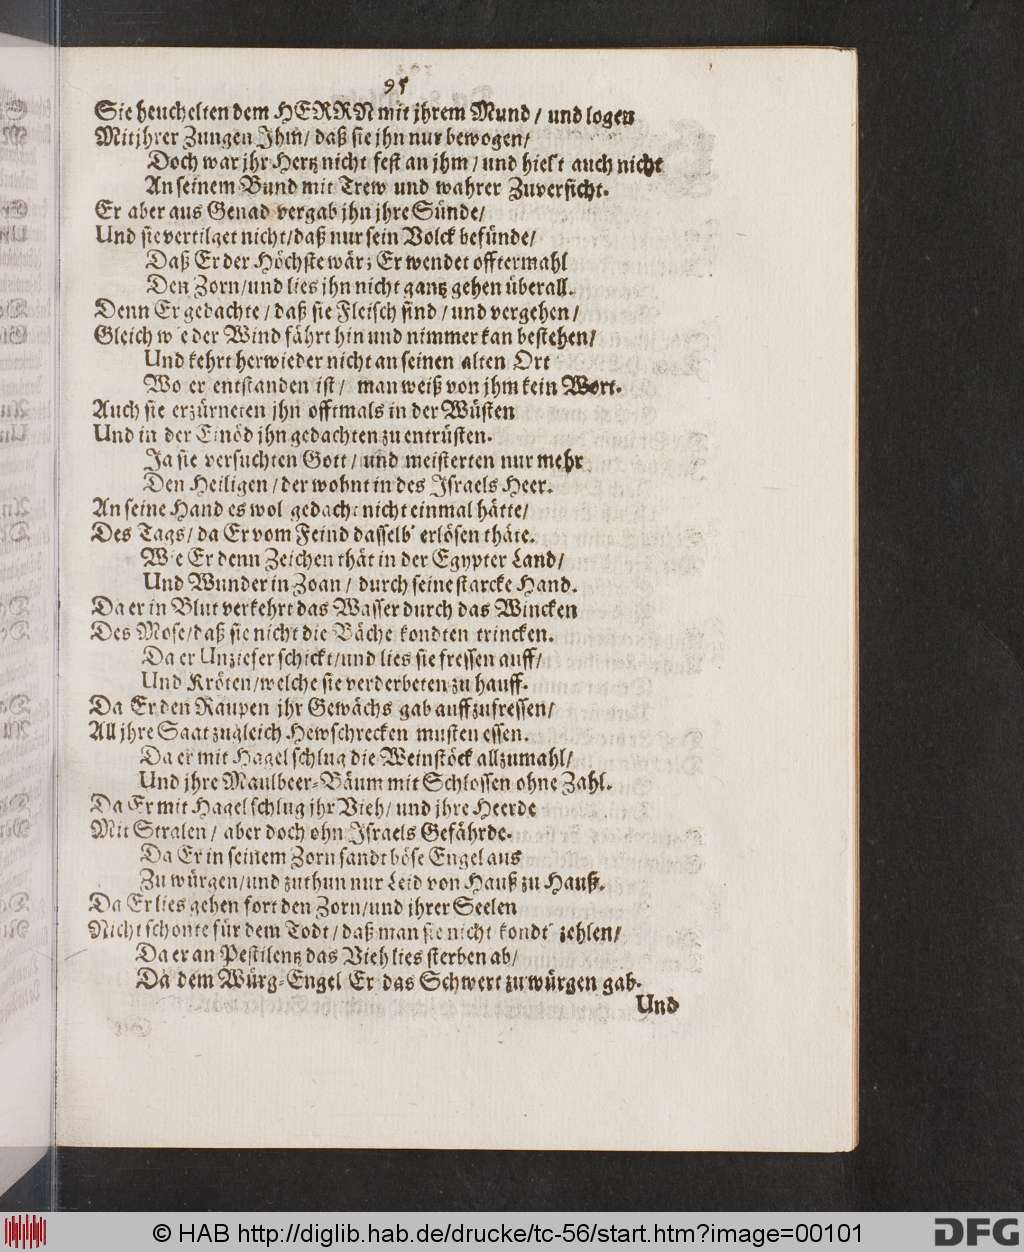 95
Sie heuchelten dem HERRN mit jhrem Mund / und logen
Mit jhrer Zungen Jhm̃ / daß sie jhn nur bewogen /
Doch war jhr Hertz nicht fest an jhm / und hielt auch nicht
An seinem Bund mit Trew und wahrer Zuversicht.
Er aber aus Genad vergab jhn jhre Sünde /
Und sie vertilget nicht / daß nur sein Volck befünde /
Daß Er der Höchste wär; Er wendet offtermahl
Den Zorn / und lies jhn nicht gantz gehen überall.
Denn Er gedachte / daß sie Fleisch sind / und vergehen /
Gleich wie der Wind fährt hin und nimmer kan bestehen /
Und kehrt herwieder nicht an seinen alten Ort
Wo er entstanden ist / man weiß von jhm kein Wort.
Auch sie erzürneten jhn offtmals in der Wüsten
Und in der Einöd jhn gedachten zu entrüsten.
Ja sie versuchten Gott / und meisterten nur mehr
Den Heiligen / der wohnt in des Jsraels Heer.
An seine Hand es wol gedacht nicht einmal hätte /
Des Tags / da Er vom Feind dasselb' erlösen thäte.
Wie Er denn Zeichen thät in der Egypter Land /
Und Wunder in Zoan / durch seine starcke Hand.
Da er in Blut verkehrt das Wasser durch das Wincken
Des Mose / daß sie nicht die Bäche kondten trincken.
Da er Unziefer schickt / und lies sie fressen auff /
Und Kröten / welche sie verderbeten zu hauff.
Da Er den Raupen jhr Gewächs gab auffzufressen /
All jhre Saat zugleich Hewschrecken musten essen.
Da er mit Hagel schlug die Weinstöck allzumahl /
Und jhre Maulbeer-Bäum mit Schlossen ohne Zahl.
Da Er mit Hagel schlug jhr Vieh / und jhre Heerde
Mit Stralen / aber doch ohn Jsraels Gefährde.
Da Er in seinem Zorn sandt böse Engel aus
Zu würgen / und zuthun nur Leid von Hauß zu Hauß.
Da Er lies gehen fort den Zorn / und jhrer Seelen
Nicht schonte für dem Todt / daß man sie nicht kondt' zehlen /
Da er an Pestilentz das Vieh lies sterben ab /
Da dem Würg-Engel Er das Schwert zu würgen gab.
Und
© HAB http://diglib.hab.de/drucke/tc-56/start.htm?image=00101
DFG